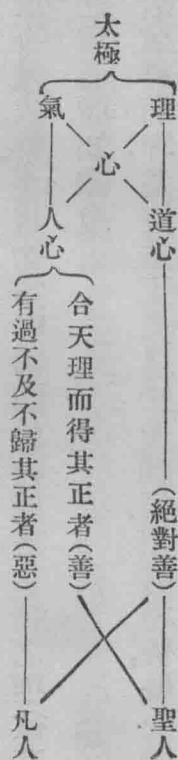 太極
理
氣
心
道心
人心
合天理而得其正者(善)
有過不及不歸其正者(惡)
(絕對善)
聖人
凡人